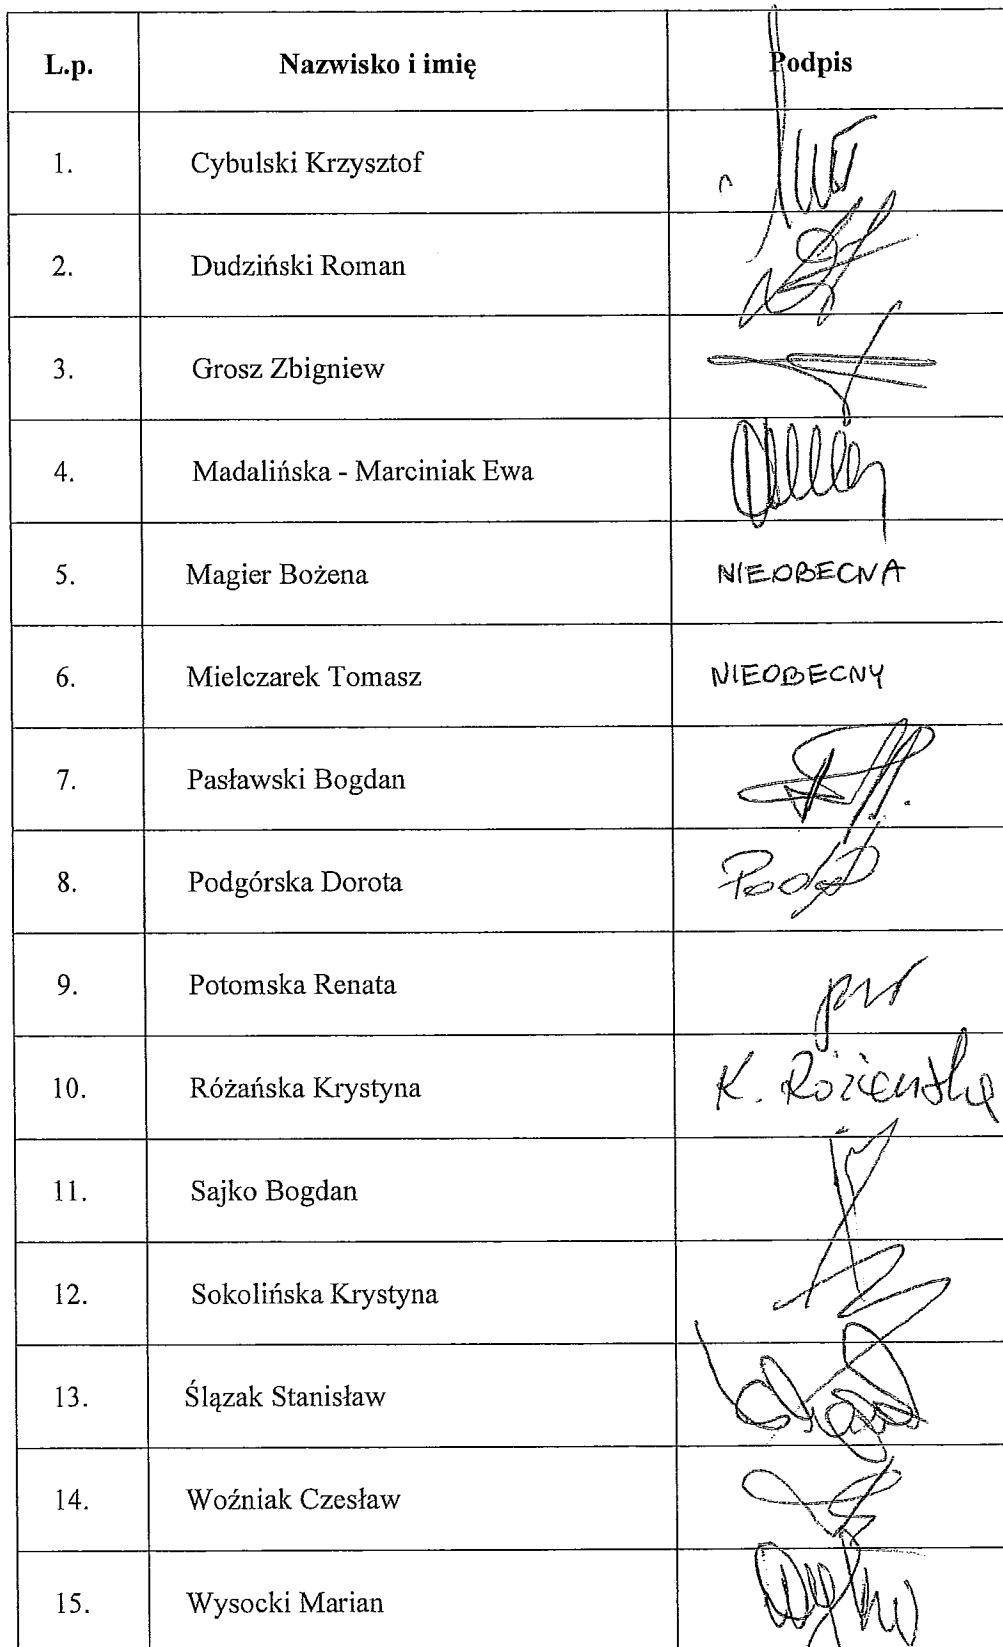 L.p. Nazwisko i imię Podpis
1. Cybulski Krzysztof
2. Dudziński Roman
3. Grosz Zbigniew
4. Madalińska - Marciniak Ewa
5. Magier Bożena NIEOBECNA
6. Mielczarek Tomasz NIEOBECNY
7. Pasławski Bogdan
8. Podgórska Dorota
9. Potomska Renata
10. Różańska Krystyna K. Różańska
11. Sajko Bogdan
12. Sokolińska Krystyna
13. Ślązak Stanisław
14. Woźniak Czesław
15. Wysocki Marian